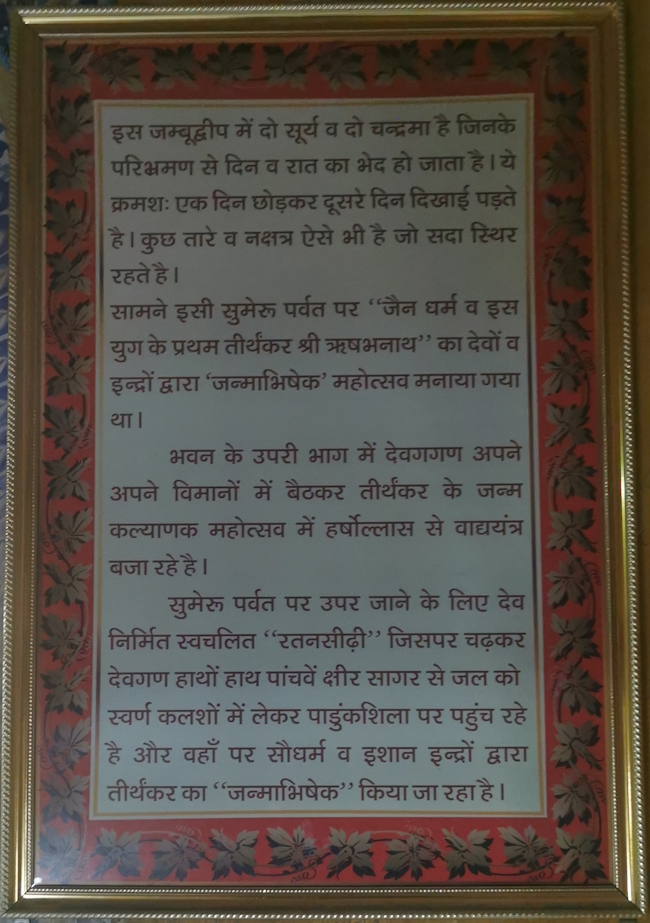 इस जम्बूद्वीप में दो सूर्य व दो चन्द्रमा है जिनके
परिभ्रमण से दिन व रात का भेद हो जाता है। ये
क्रमशः एक दिन छोड़कर दूसरे दिन दिखाई पड़ते
है। कुछ तारे व नक्षत्र ऐसे भी है जो सदा स्थिर
रहते है।
सामने इसी सुमेरू पर्वत पर ‘‘जैन धर्म व इस
युग के प्रथम तीर्थंकर श्री ऋषभनाथ’’ का देवों व
इन्द्रों द्वारा ‘जन्माभिषेक’ महोत्सव मनाया गया
था।
भवन के उपरी भाग में देवगगण अपने
अपने विमानों में बैठकर तीर्थंकर के जन्म
कल्याणक महोत्सव में हर्षोल्लास से वाद्ययंत्र
बजा रहे है।
सुमेरू पर्वत पर उपर जाने के लिए देव
निर्मित स्वचलित ‘‘रतनसीढ़ी’’ जिसपर चढ़कर
देवगण हाथों हाथ पांचवें क्षीर सागर से जल को
स्वर्ण कलशों में लेकर पाडुंकशिला पर पहुंच रहे
है और वहाँ पर सौधर्म व इशान इन्द्रों द्वारा
तीर्थंकर का ‘‘जन्माभिषेक’’ किया जा रहा है।